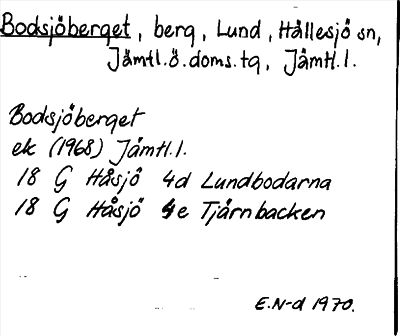 Bodsjöberget, berg, Lund, Hållesjö sn,
Jämtl.ö.doms.tg, Jämtl.l.
Bodsjöberget
ek (1968) Jämtl.l.
18 G Håsjö 4d Lundbodarna
18 G Håsjö 4e Tjärnbacken
E.N-d 1970.